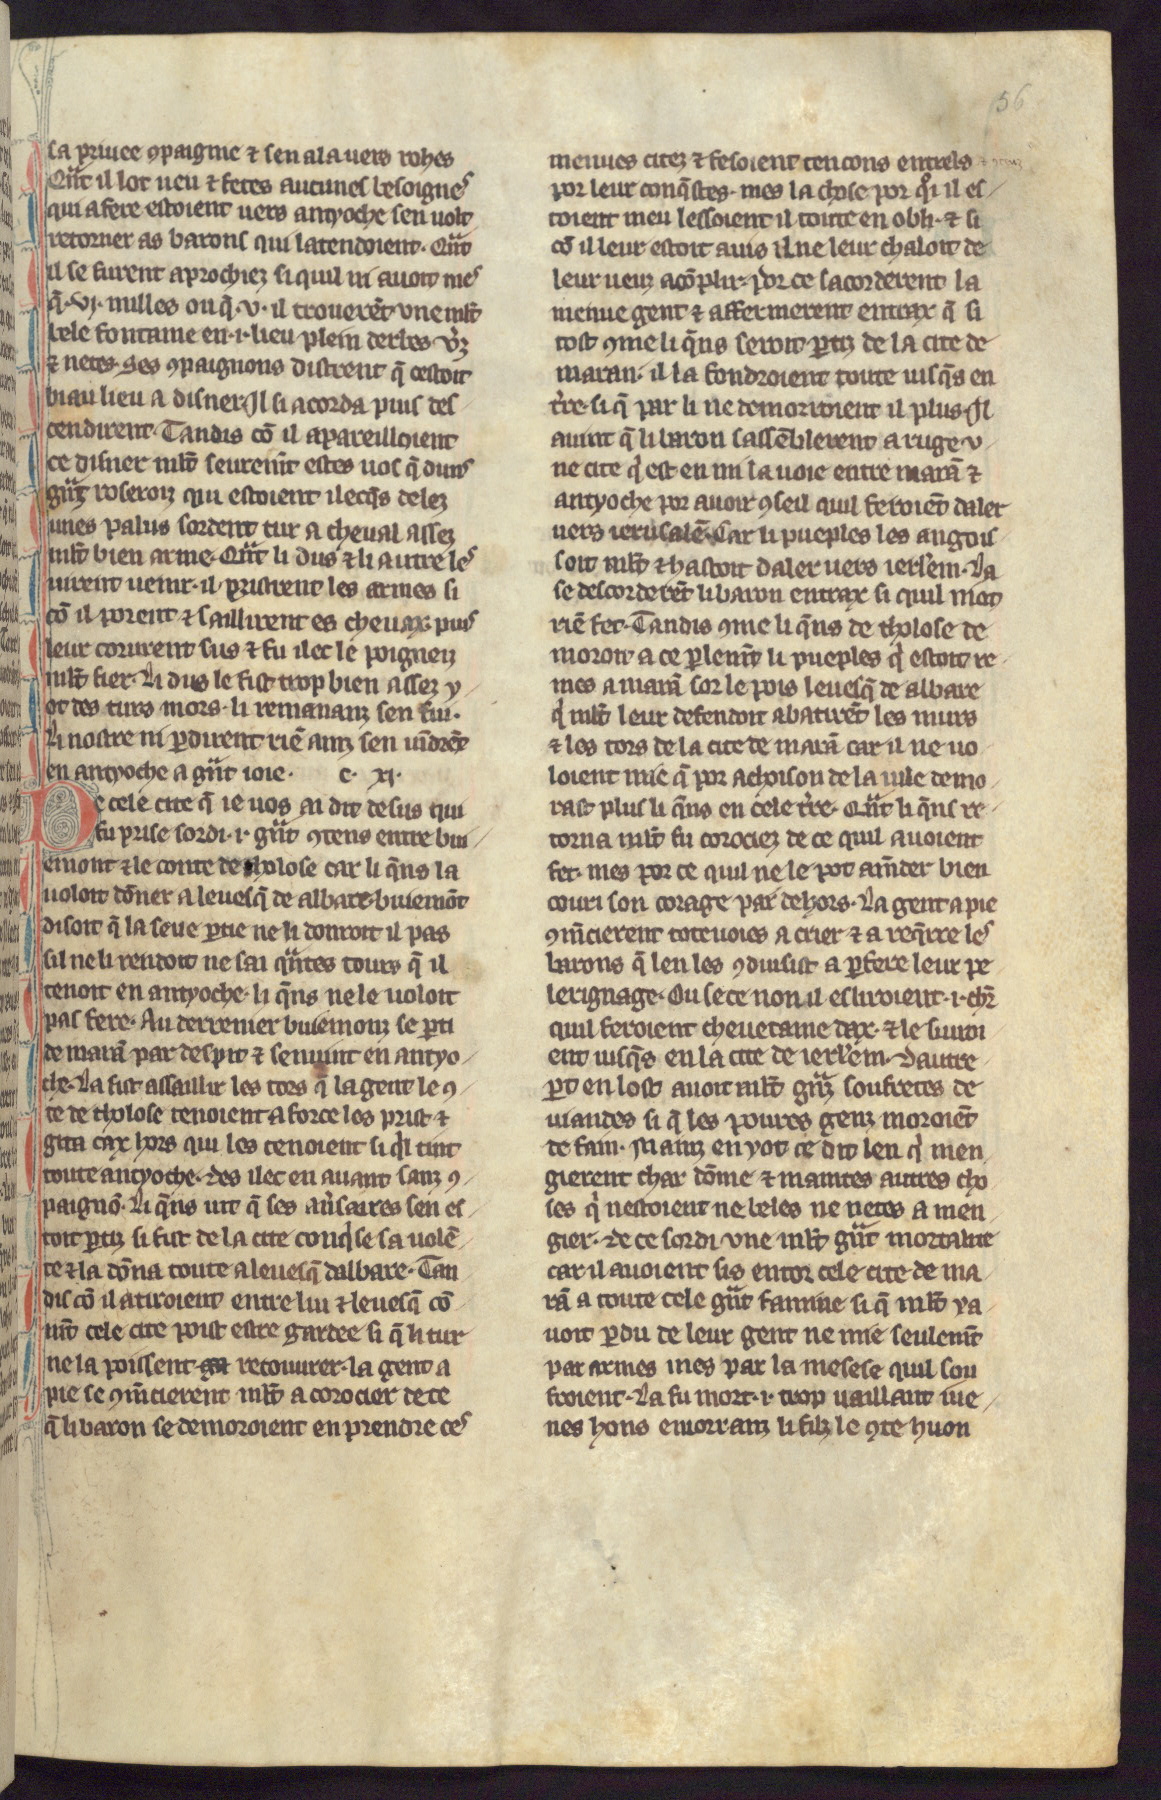 56
sa priuee ꝯpaignie ⁊ sen ala uers rohes
Qᵃnt il lot ueu ⁊ fetes aucunes besoignes
qui a fere estoient uers antyoche sen uolt
retorner as barons qui latendoient. Qᵃnt
il se furent aprochiez si quil ni auoit mes
q̄ .vj. milles ou q̄ .v. il trouerēt vne ml̄t
bele fontaine en .i. lieu plein derbes v̾z
⁊ netes. Ses ꝯpaignons distrent q̄ cestoit
biau lieu a disner. Il si acorda puis des
cendirent. Tandis cō il apareilloient
ce disner ml̄t seurenīt estes uos q̄ duns
gᵃnz roseroiz qui estoient ilecq̄s delez
unes palus sordent tur a cheual assez
ml̄t bien arme. Qᵃnt li dus ⁊ li autre les
uirent uenir. il pristrent les armes si
cō il porent ⁊ saillirent es cheuax puis
leur corurent sus ⁊ fu ilec le poigneiz
ml̄t fier. Li dus le fist trop bien assez y
ot des turs mors. li remananz sen fui.
Li nostre ni ꝑdirent riē ainz sen uīdrēt
en antyoche a gᵃnt ioie. c. xj.
De cele cite q̄ ie uos ai dit desus qui
fu prise sordi .i. gᵃnt ꝯtens entre bui
emont ⁊ le conte de tholose car li q̄ns la
uoloit dōner a leuesq̄ de albare. buiemōt
disoit q̄ la seue ꝑtie ne li donroit il pas
sil ne li rendoit ne sai qᵃntes tours q̄ il
tenoit en antyoche. li q̄ns ne le uoloit
pas fere. Au derrenier buiemonz se ꝑti
de marā par despit ⁊ senuint en antyo
che. La fist assaillir les tors q̄ la gent le ꝯ
te de tholose tenoient a force les prist ⁊
gita cax hors qui les tenoient si qͥl tint
toute antyoche. des ilec en auant sanz ꝯ
paignō. Li q̄ns uit q̄ ses aūsaires sen es
toit ꝑtiz si fist de la cite conqͥse sa uolē
te ⁊ la dōna toute a leuesq̄ dalbare. Tan
dis cō il atiroient entre lui ⁊ leuesq̄ cō
mt̄ cele cite poist estre gardee si q̄ li tur
ne la poissent recouurer. la gent a
pie se ꝯmc̄ierent ml̄t a corocier de ce
q̄ li baron se demoroient en prendre ces
menues citez ⁊ fesoient tencons entrels
por leur conq̄stes. mes la chose por qͦi il es
toient meu lessoient il toute en obli. ⁊ si
cō il leur estoit auis il ne leur chaloit de
leur ueuz acōplir. Por ce sacorderent la
menue gent ⁊ affermerent entrax q̄ si
tost ꝯme li q̄ns seroit ꝑtiz de la cite de
maran. il la fondroient toute iusq̄s en
t̾re. si q̄ par li ne demorroient il plus. Il
auint q̄ li baron sassēblerent a ruge v
ne cite qͥ est en mi la uoie entre marā ⁊
antyoche por auoir ꝯseil quil feroiēt daler
uers ierusalē. Car li pueples les angois
soit ml̄t ⁊ hastoit daler uers ierl̄em. La
se descorderēt li baron entrax si quil niot
riē fet. Tandis ꝯme li q̄ns de tholose de
moroit a ce ꝑlenīt li pueples qͥ estoit re
mes a marā sor le pois leuesq̄ de albare
qͥ ml̄t leur defendoit abatirēt les murs
⁊ les tors de la cite de marā car il ne uo
loient mie q̄ por achoison de la uile demo
rast plus li q̄ns en cele t̾re. Qᵃnt li q̄ns re
torna ml̄t fu corociez de ce quil auoient
fet. mes por ce quil ne le pot am̄der bien
couri son corage par dehors. La gent a pie
ꝯmc̄ierent toteuoies a crier ⁊ a req̄rre les
barons q̄ len les ꝯduisist a ꝑfere leur pe
lerignage. Ou se ce non il esliroient .i. chr̄
quil feroient cheuetaine dax. ⁊ le siuroi
ent iusq̄s en la cite de ierl̄em. Dautre
ꝑt en lost auoit ml̄t gᵃnz soufretes de
uiandes si q̄ les poures genz moroiēt
de fain. Mainz en yot ce dit len qͥ men
gierent char dōme ⁊ maintes autres cho
ses qͥ nestoient ne beles ne netes a men
gier. de ce sordi vne ml̄t gᵃnt mortalite
car il auoient sis entor cele cite de ma
rā a toute cele gᵃnt famine si q̄ ml̄t ya
uoit ꝑdu de leur gent ne mie seulenīt
par armes mes par la mesese quil sou
froient. La fu mort .i. trop uaillant iue
nes hons eniorranz li filz le ꝯte huon